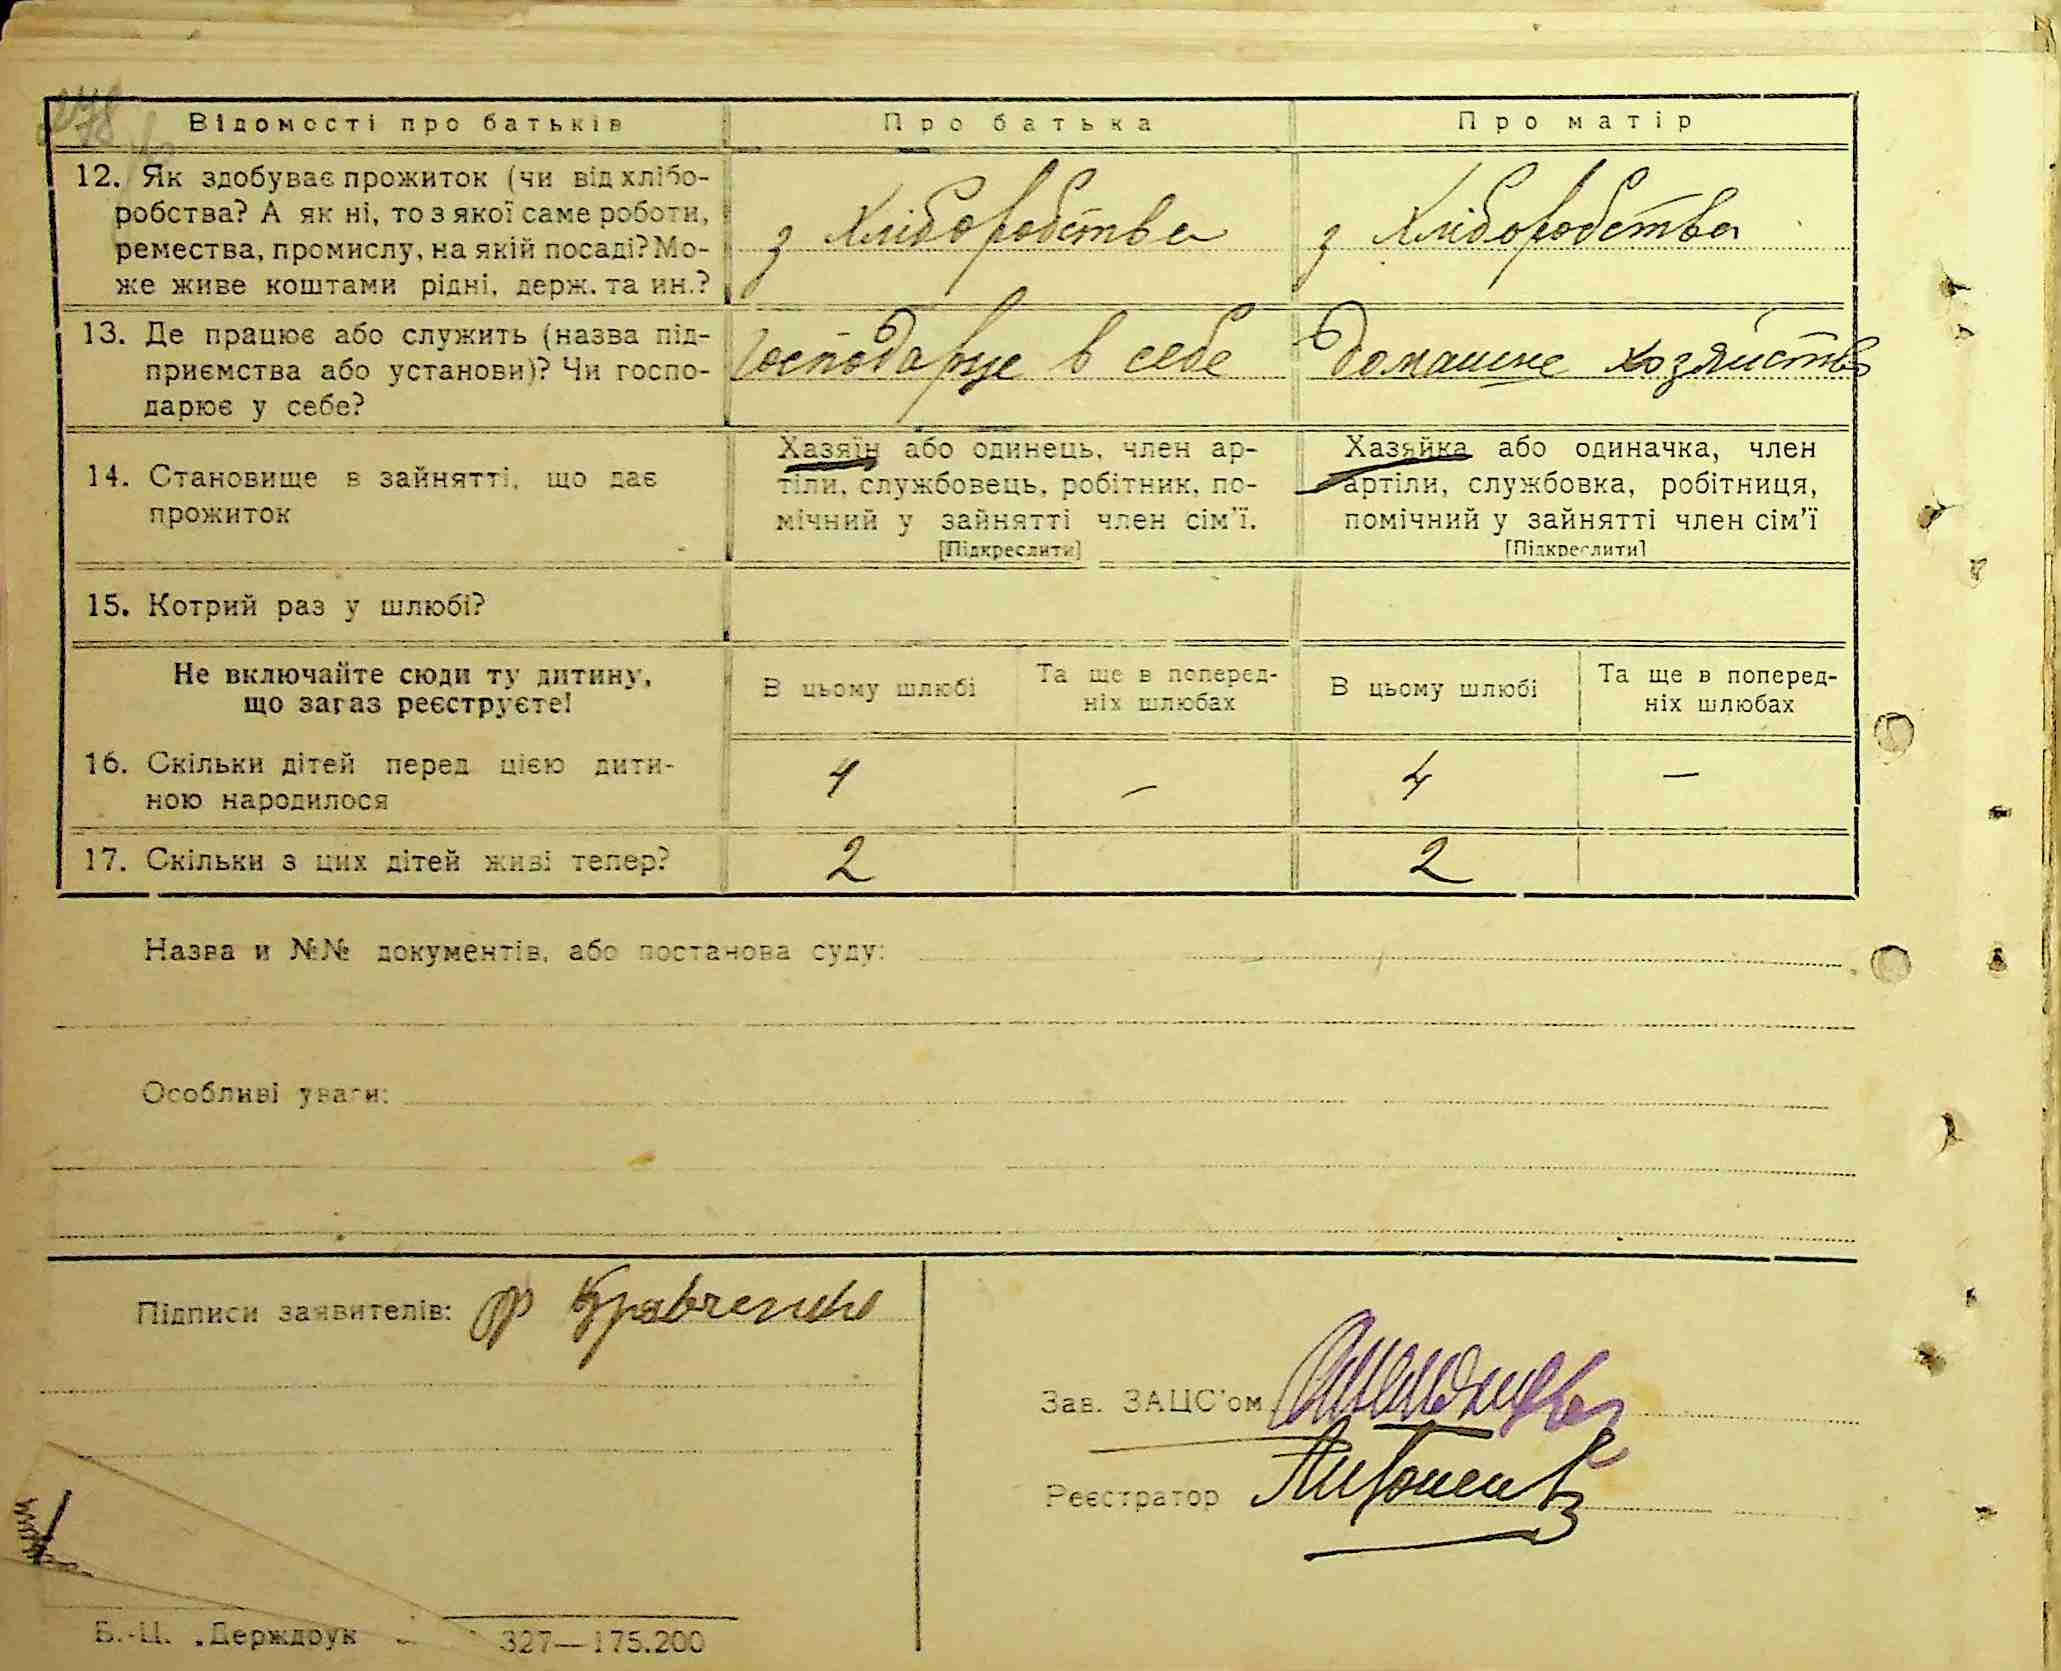 248
Відомості про батьків Про батька Про матір
12. Як здобуває прожиток (чи від хлібо-
робства? А як ні, то з якої саме роботи,
ремества, промислу, на якій посаді? Мо-
же живе коштами рідні, держ. та ин.?
з хліборобства з хліборобства
13. Де працює або служить (назва під-
приємства або установи)? Чи госпо-
дарює у себе?
Господарує в себе В домашнє хозяйство
14. Становище в зайнятті, що дає
прожиток
Хазяїн або одинець, член ар-
тіли, службовець, робітник, по-
мічний у зайнятті член сім'ї.
[Підкреслити]
Хазяйка або одиначка, член
артіли, службовка, робітниця,
помічний у зайнятті член сім'ї
[Підкреслити]
15. Котрий раз у шлюбі?
Не включайте сюди ту дитину,
що зараз реєструєте!
В цьому шлюбі
Та ще в поперед-
ніх шлюбах
В цьому шлюбі
Та ще в поперед-
ніх шлюбах
16. Скільки дітей перед цією дити-
ною народилося
4 — 4 —
17. Скільки з цих дітей живі тепер? 2 2
Назва и №№ документів, або постанова суду:
Особливі уваги:
Підписи заявителів: Ф Кравченко
Зав. ЗАЦС'ом
Реєстратор
Б.-Ц. „Держдрук 327—175.200